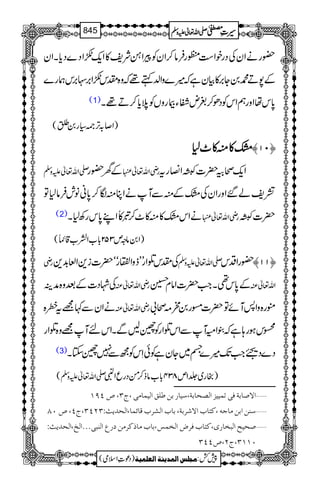 سیرتِ مصطفیٰ صلی اللہ تعالیٰ علیہ وسلم 845
حضور نے ان کی یہ درخواست منظور فرما کر ان کو اپنے پیراہن شریف کا ایک ٹکڑا دے دیا۔ ان
کے پوتے محمد بن جابر کا بیان ہے کہ میرے والد کہتے تھے کہ وہ مقدس ٹکڑا برسہا برس ہمارے
پاس تھا اور ہم اس کو دھو کر بغرض شفاء بیماروں کو پلایا کرتے تھے۔ (1)
(اصابہ ترجمہ سیار بن طلق)
﴿۱۰﴾ مشک کا منہ کاٹ لیا
ایک صحابیہ حضرت کبشہ انصاریہ رضی اللہ تعالیٰ عنہا کے گھر حضور صلی اللہ تعالیٰ علیہ وسلم
تشریف لے گئے اور ان کی مشک کے منہ سے آپ نے اپنا منہ لگا کر پانی نوش فرمالیا تو
حضرت کبشہ رضی اللہ تعالیٰ عنہا نے اس مشک کا منہ کاٹ کر تبرکاً اپنے پاس رکھ لیا۔ (2)
(ابن ماجہ ص ۲۵۳ باب الشرب قائماً)
﴿۱۱﴾ حضور اقدس صلی اللہ تعالیٰ علیہ وسلم کی مقدس تلوار ”ذوالفقار“ حضرت زین العابدین رضی
اللہ تعالیٰ عنہ کے پاس تھی۔ جب حضرت امام حسین رضی اللہ تعالیٰ عنہ کی شہادت کے بعد وہ مدینہ
منورہ واپس آئے تو حضرت مسور بن مخرمہ صحابی رضی اللہ تعالیٰ عنہ نے ان سے کہا کہ مجھے یہ خطرہ
محسوس ہورہا ہے کہ بنوامیہ آپ سے اس تلوار کو چھین لیں گے۔ اس لئے آپ مجھے وہ تلوار
دے دیجئے جب تک میرے جسم میں جان ہے کوئی اس کو مجھ سے نہیں چھین سکتا۔ (3)
(بخاری جلد۱ ص ۴۳۸ باب ما ذکر من درع النبی صلی اللہ تعالیٰ علیہ وسلم)
الاصابة فی تمییز الصحابة، سیار بن طلق الیمامی، ج۳، ص ۱۹۴
سنن ابن ماجه، کتاب الاشربة، باب الشرب قائما، الحدیث:۳۴۲۳، ج۴، ص ۸۰
صحیح البخاری، کتاب فرض الخمس، باب ماذکرمن درع النبی...الخ، الحدیث:
۳۱۱۰، ج۲، ص۳۴۴
پیش کش: مجلس المدینة العلمیة (دعوتِ اسلامی)